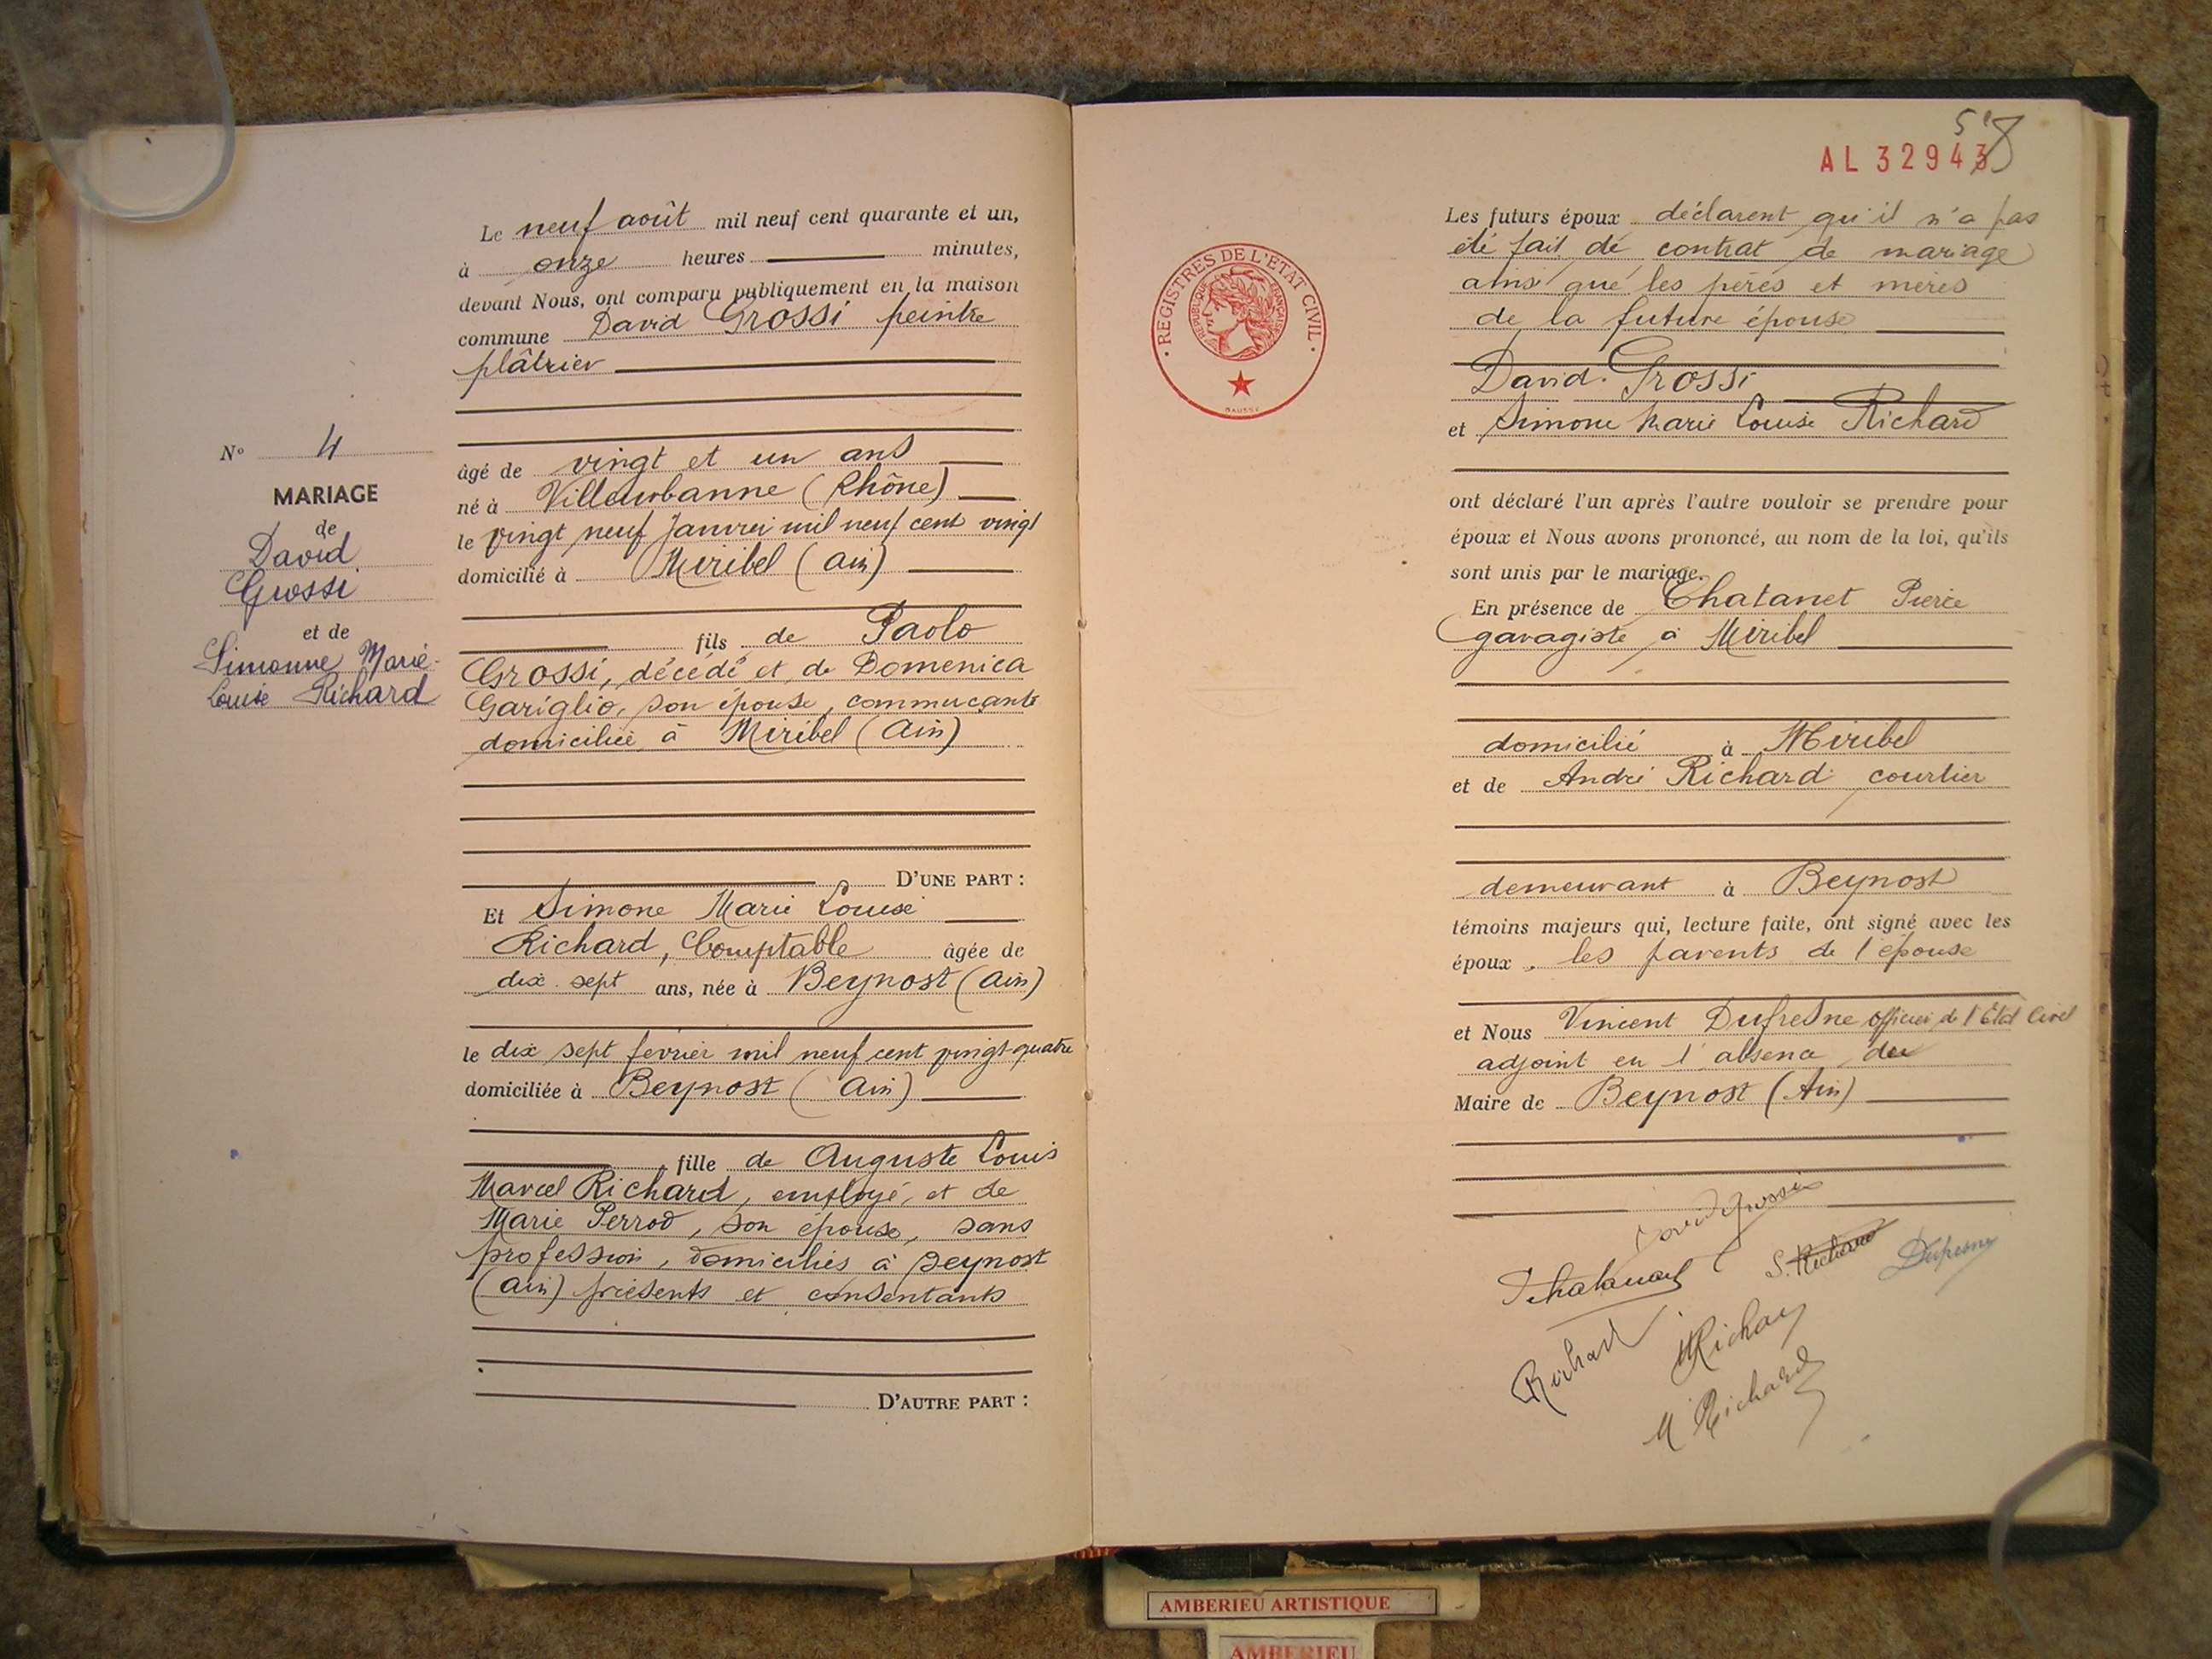 Le neuf août mil neuf cent quarante et un,
à onze heures minutes,
devant Nous, ont comparu publiquement en la maison
commune David Grossi peintre
plâtrier
N° 4
MARIAGE
de
David
Grossi
et de
Simonne Marie-
Louise Richard
âgé de vingt et un ans
né à Villeurbanne (Rhône)
le vingt neuf Janvier mil neuf cent vingt
domicilié à Miribel (Ain)
fils de Paolo
Grossi, décédé et de Domenica
Gariglio, son épouse, commerçante
domiciliée à Miribel (Ain)
D'UNE PART :
Et Simone Marie Louise
Richard, Comptable âgée de
dix sept ans, née à Beynost (Ain)
le dix sept février mil neuf cent vingt-quatre
domiciliée à Beynost (Ain)
fille de Auguste Louis
Marcel Richard, employé, et de
Marie Perrod, son épouse, sans
profession, domiciliés à Beynost
(Ain) présents et consentants
D'AUTRE PART :
58
AL 32943
REGISTRES DE L'ÉTAT CIVIL
RÉPUBLIQUE FRANÇAISE
Les futurs époux déclarent qu'il n'a pas
été fait de contrat de mariage
ainsi que les pères et mères
de la future épouse
David Grossi
et Simone Marie Louise Richard
ont déclaré l'un après l'autre vouloir se prendre pour
époux et Nous avons prononcé, au nom de la loi, qu'ils
sont unis par le mariage.
En présence de Chatanet Pierre
garagiste à Miribel
domicilié à Miribel
et de André Richard courtier
demeurant à Beynost
témoins majeurs qui, lecture faite, ont signé avec les
époux, les parents de l'épouse
et Nous Vincent Dufresne officier de l'Etat Civil
adjoint en l'absence du
Maire de Beynost (Ain)
David Grossi
S. Richard
Dufresne
Richard
M Richard
AMBERIEU ARTISTIQUE
AMBERIEU